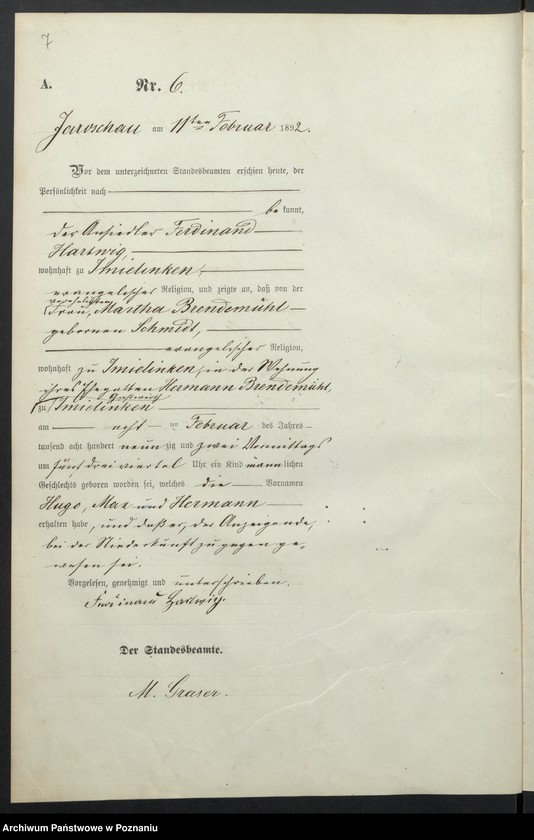 7
A. Nr. 6.
Jaroschau am 11ten Februar 1892.
Vor dem unterzeichneten Standesbeamten erschien heute, der
Persönlichkeit nach
be kannt,
der Ansiedler Ferdinand
Hartwig,
wohnhaft zu Imielinken,
evangelischer Religion, und zeigte an, daß von der
verehelichten
Frau, Martha Brendemühl
geborenen Schmidt,
evangelischer Religion,
wohnhaft zu Imielinken, in der Wohnung
ihres Ehegatten Hermann Brendemühl,
Gastwirth
zu Imielinken
am acht ten Februar des Jahres
tausend acht hundert neun zig und zwei Vormittags
um fünf dreiviertel Uhr ein Kind männ lichen
Geschlechts geboren worden sei, welches die Vornamen
Hugo, Max und Hermann
erhalten habe, und daß er, der Anzeigende,
bei der Niederkunft zugegen ge,
wesen sei.
Vorgelesen, genehmigt und unterschrieben.
Ferdinand Hartwig.
Der Standesbeamte.
M. Graser.
Archiwum Państwowe w Poznaniu